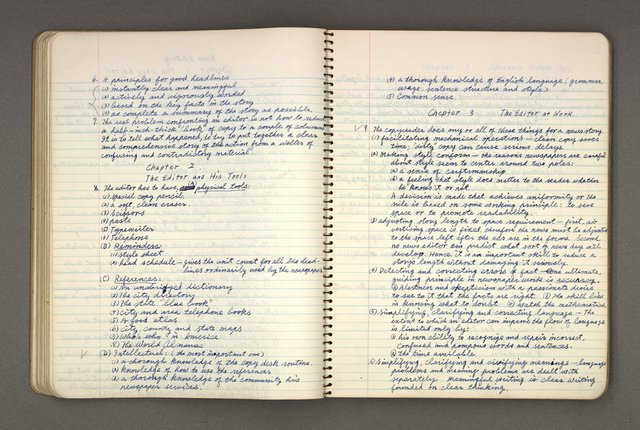 6. 4 principles for good headlines
(1) instantly clear and meaningful
(2) actively and vigorously worded
(3) based on the key facts in the story
(4) as complete a summary of the story as possible.
7. The real problem confronting an editor is not how to reduce
a half-inch-thick "book" of copy to a couple of columns.
It is to tell what happened, is to put together a clear
and comprehensive story of the action from a welter of
confusing and contradictory material.
Chapter 2
The Editor and His Tools
8. The editor has to have (A) physical tools:
(1) special copy pencil
(2) a soft, clean eraser
(3) Scissors
(4) paste
(5) Typewriter
(6) Telephone
(B) Reminders:
(1) style sheet
(2) head schedule — gives the unit count for all the head-
lines ordinarily used by the newspaper
(C) References:
(1) An unabridged dictionary
(2) The city directory
(3) The state "blue book"
(4) city and area telephone books
(5) A good atlas
(6) city, county and state maps
(7) Who's who in America
(8) The World Almanac
(D) Intellectual: (the most important one)
(1) a thorough knowledge of the copy desk routine.
(2) knowledge of how to use the references
(3) a thorough knowledge of the community his
newspaper serves.
(4) a thorough knowledge of English language (grammar,
usage, sentence structure and style)
(5) Common sense.
Chapter 3 The Editor at Work
9. The copyreader does any or all of these things for a news story.
(1) facilitating mechanical operations — clean copy saves
time, "dirty" copy can cause serious delays.
(2) Making style conform — the reasons newspapers are careful
about style seem to center around two poles:
a sense of craftsmanship
a feeling that style does matter to the reader whether
he knows it or not
A decision is made that achieves uniformity or the
rule is based on some working principle: to save
space or to promote readability.
(3) adjusting story length to space requirement — first, ad-
vertising space is fixed, therefore the news must be adjusted
to the space left after the ads are in the forms. Second,
no news editor can predict what sort of news day will
develop. Hence it is an important skill to reduce a
story's length without damaging it severely.
(4) Detecting and correcting errors of fact — the ultimate,
guiding principle in newspaper works is accuracy.
Alertness and skepticism with a passionate desire
to see to it that the facts are right. The skill lies
in knowing what to doubt. watch the mathematics
(5) Simplifying, clarifying and correcting language — The
extent to which an editor can improve the flow of language
is limited only by:
his own ability to recognize and repair incorrect,
confused and pompous words and sentences.
the time available.
(6) Simplifying, clarifying and vivifying meanings — language
problems and meaning problems are dealt with
separately. meaningful writing is clear writing
founded on clear thinking.